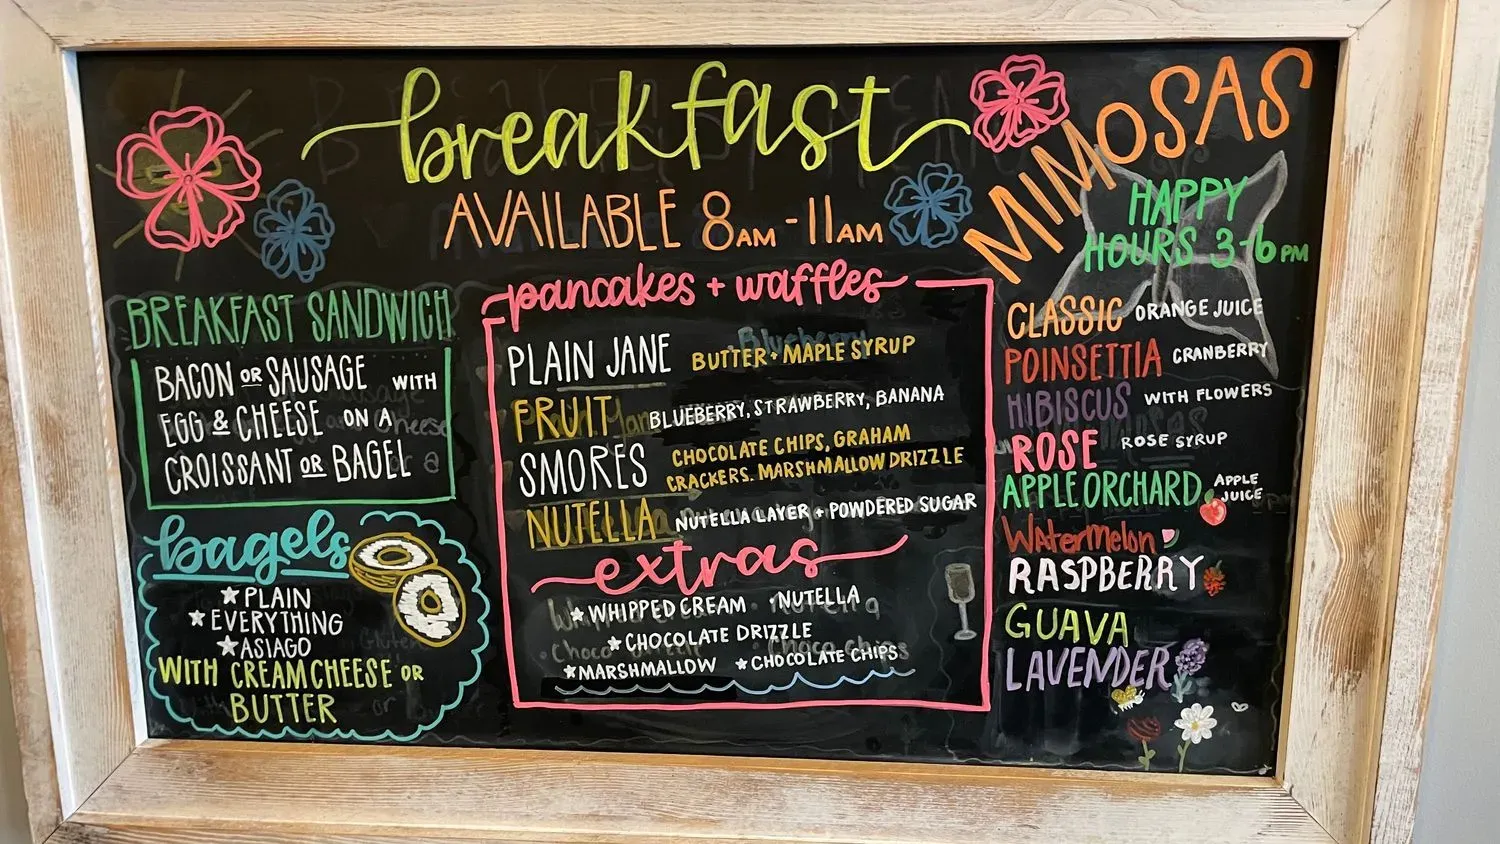 breakfast
AVAILABLE 8AM-11AM
BREAKFAST SANDWICH
BACON OR SAUSAGE WITH
EGG & CHEESE ON A
CROISSANT OR BAGEL
bagels
PLAIN
EVERYTHING
ASIAGO
WITH CREAM CHEESE OR
BUTTER
pancakes + waffles
PLAIN JANE BUTTER + MAPLE SYRUP
FRUIT BLUEBERRY, STRAWBERRY, BANANA
SMORES CHOCOLATE CHIPS, GRAHAM
CRACKERS. MARSHMALLOW DRIZZLE
NUTELLA NUTELLA LAYER + POWDERED SUGAR
extras
WHIPPED CREAM NUTELLA
CHOCOLATE DRIZZLE
MARSHMALLOW CHOCOLATE CHIPS
MIMOSAS
HAPPY
HOURS 3-6PM
CLASSIC ORANGE JUICE
POINSETTIA CRANBERRY
HIBISCUS WITH FLOWERS
ROSE ROSE SYRUP
APPLE ORCHARD APPLE
JUICE
WATERMELON
RASPBERRY
GUAVA
LAVENDER